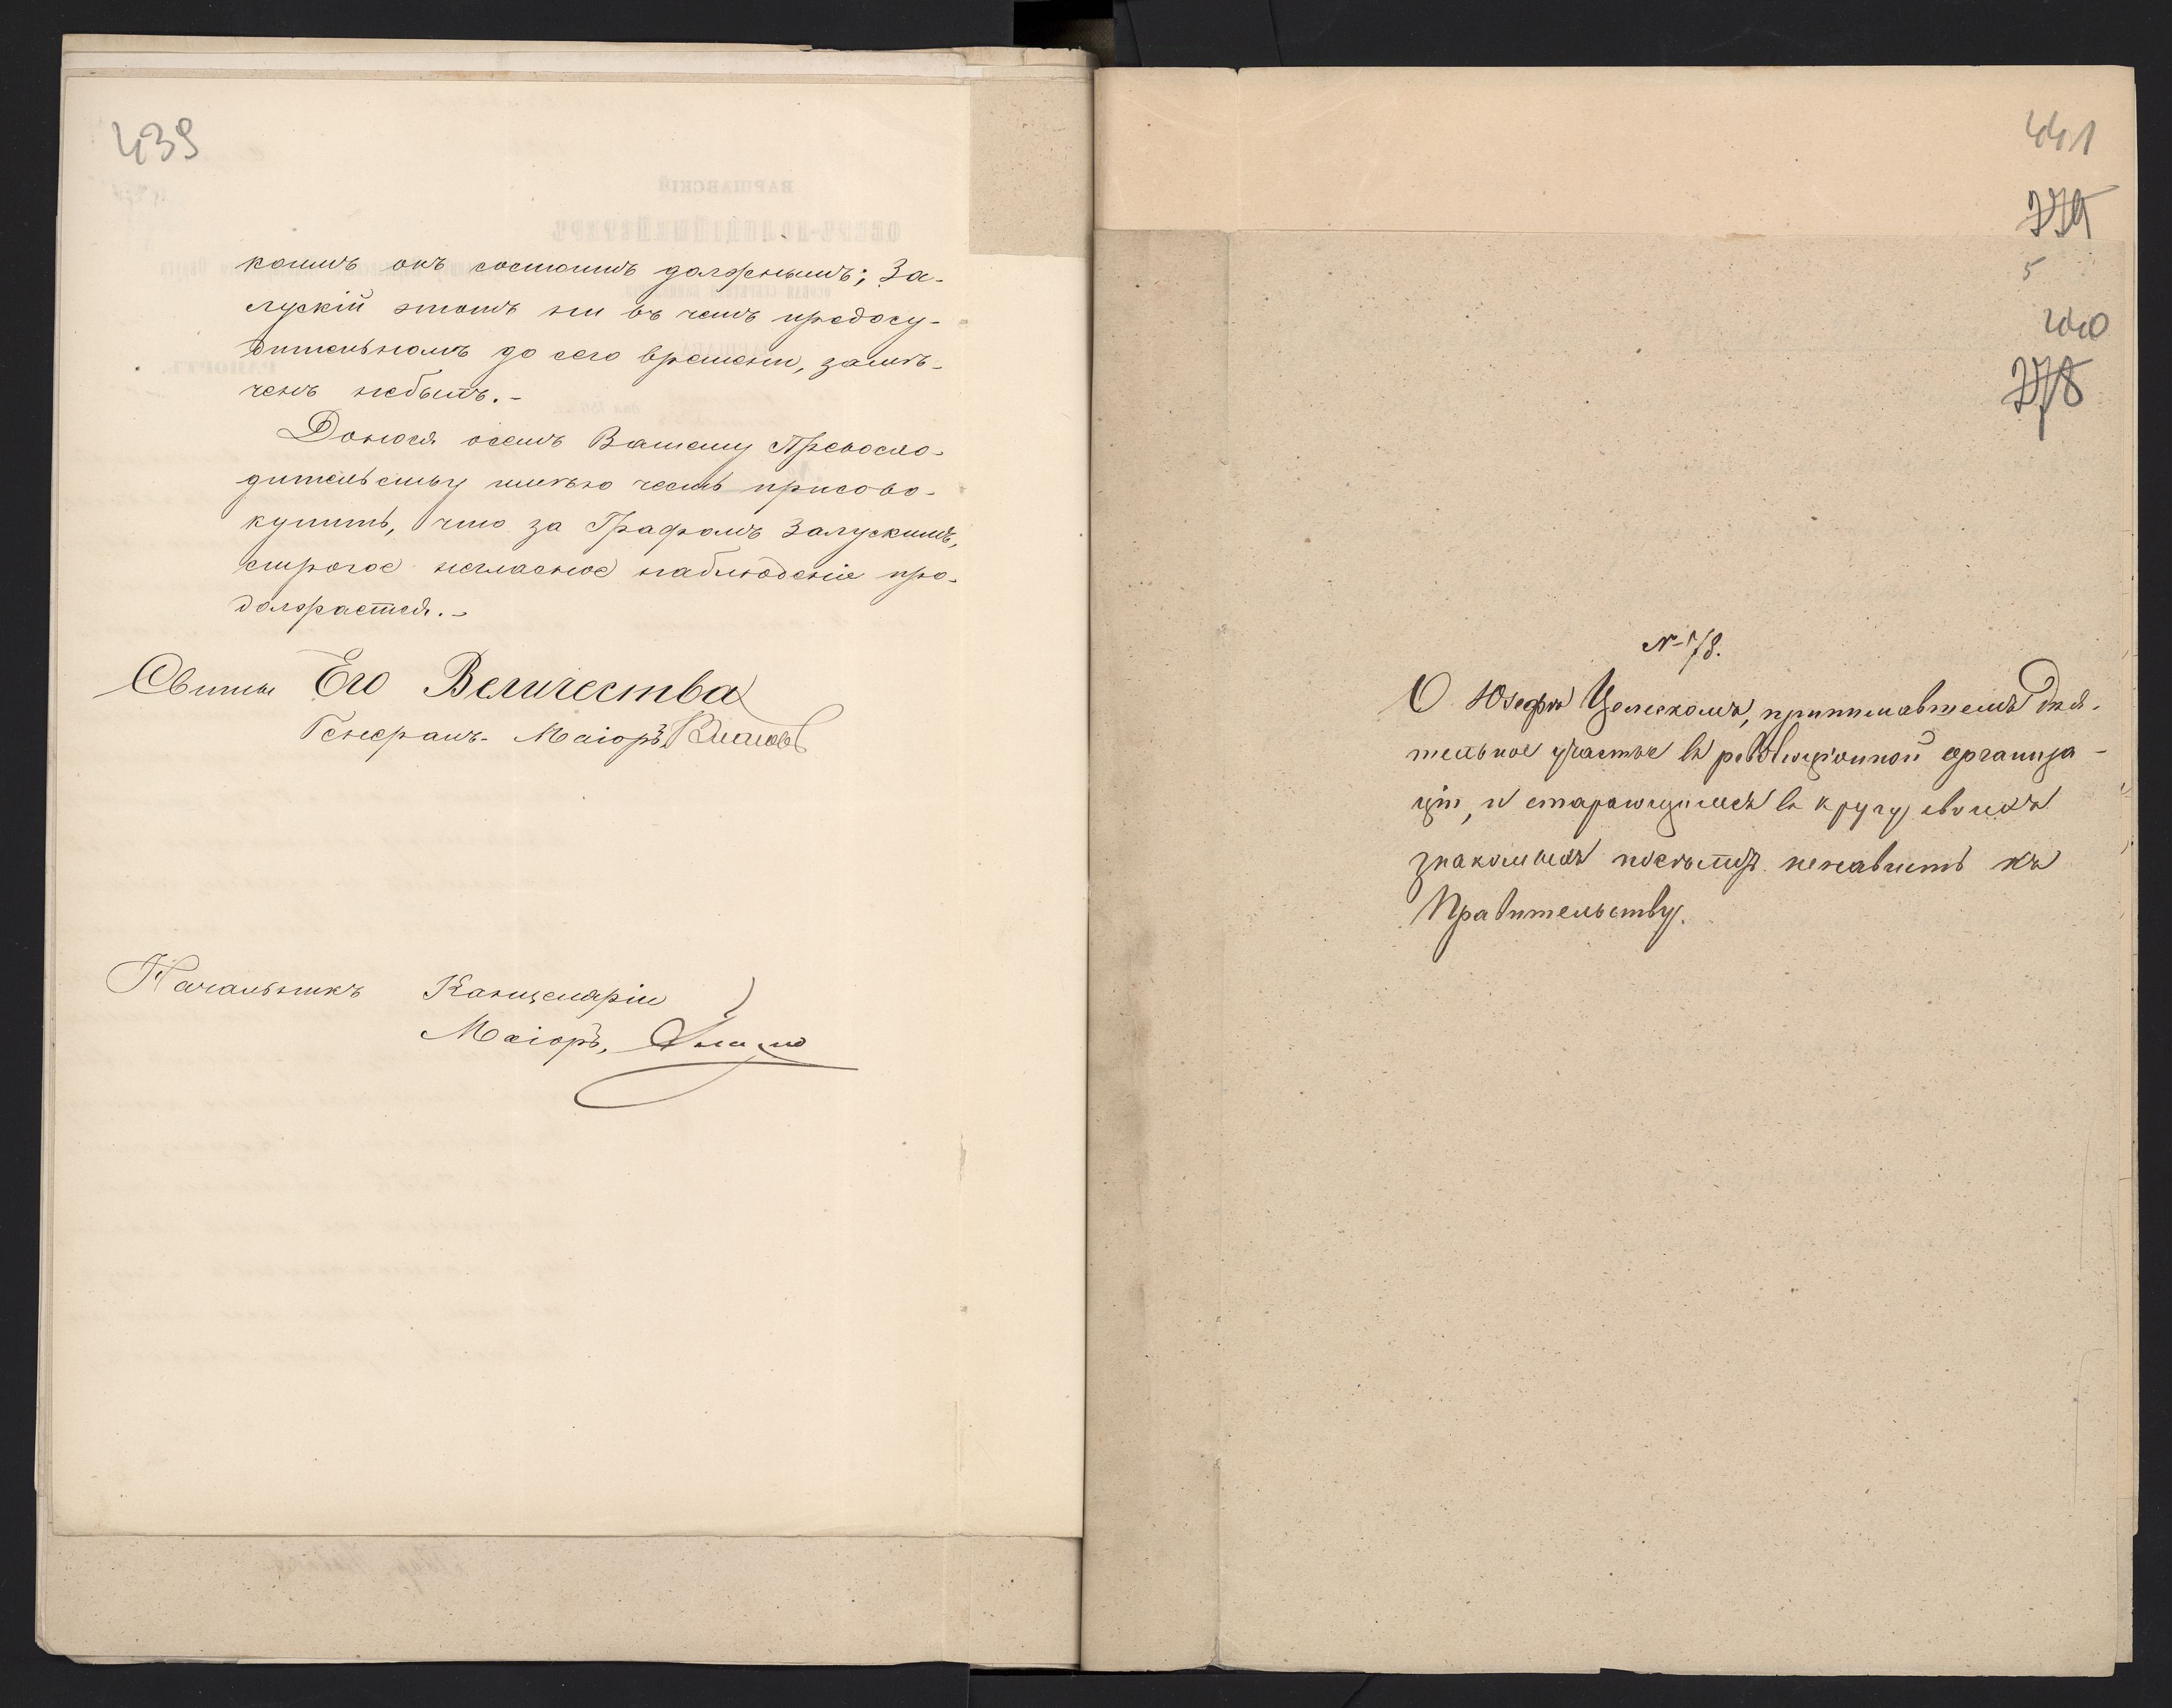 439
комъ онъ состоитъ должнымъ; За-
лускій этотъ ни въ чемъ предосу-
дительномъ до сего времени, замѣ-
ченъ небылъ.-
Донося осемъ Вашему Превосхо-
дительству имѣю честь присово-
купить, что за Графомъ Залускимъ,
строгое негласное наблюденіе про-
должается.-
Свиты Его Величества
Генералъ-Маіоръ
Начальникъ Канцеляріи
Маіоръ,
441
779
5
440
778
№ 78.
О Юзефѣ принимавшемъ дѣя-
тельное участье въ революціонной организа-
ціи, и старающимся въ кругу своихъ
знакомыхъ посѣлить ненависть къ
Правительству.